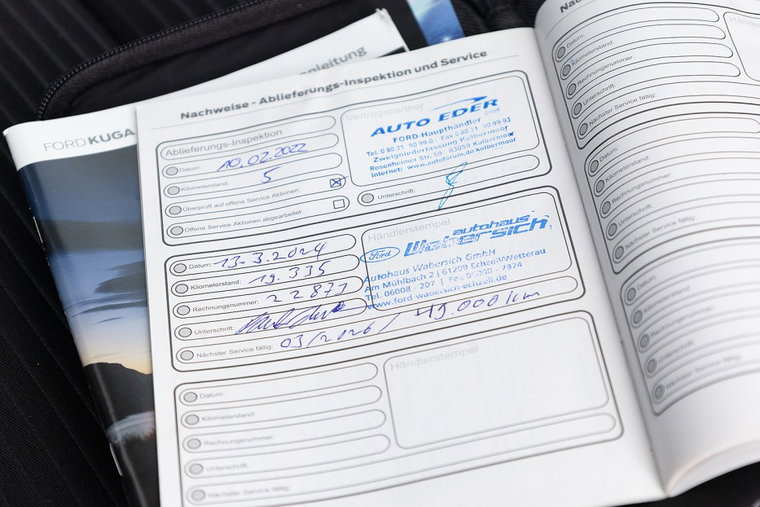 nleitung
FORD KUGA
Nachweise - Ablieferungs-Inspektion und Service
Ablieferungs-Inspektion
Datum: 10.02.2022
Kilometerstand: 5
Überprüft auf offene Service Aktionen:
Offene Service Aktionen abgearbeitet:
Vertragspartner
AUTO EDER
FORD-Haupthändler
Tel. 0 80 31 - 90 99-0 - Fax 0 80 31 - 90 99-93
Zweigniederlassung Kolbermoor
Rosenheimer Str. 83059 Kolbermoor
Internet: www.autoforum.de/kolbermoor
Unterschrift:
Datum: 13.3.2024
Kilometerstand: 19.335
Rechnungsnummer: 22877
Unterschrift:
Nächster Service fällig: 03/2026 / 49.000 km
Händlerstempel
Ford
autohaus
Wabersich
Autohaus Wabersich GmbH
Am Mühlbach 2 | 61209 Echzell/Wetterau
Tel. 06008 - 207 | - 7974
www.ford-wabersich-echzell.de
Datum:
Kilometerstand:
Rechnungsnummer:
Unterschrift:
Nächster Service fällig:
Händlerstempel
Datum:
Kilometerstand:
Rechnungsnummer:
Unterschrift:
Nächster Service fällig:
Datum:
Kilometerstand:
Rechnungsnummer:
Unterschrift:
Nächster Service fällig:
Datum:
Kilometerstand:
Rechnungsnummer:
Unterschrift:
Nächster Service fällig: